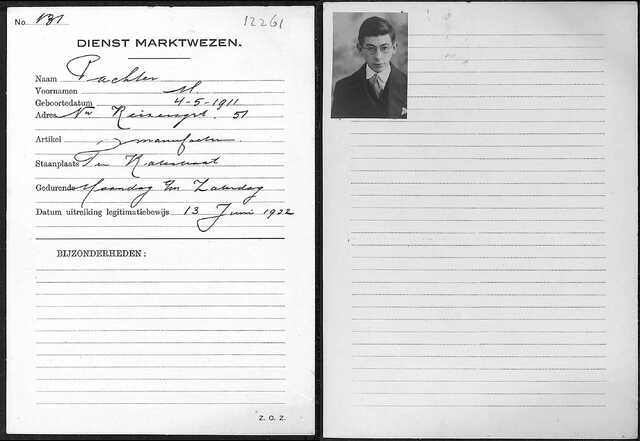 No. 131 12261
DIENST MARKTWEZEN.
Naam Pachter
Voornamen M.
Geboortedatum 4-5-1911
Adres Nw Keizersgrt. 51
Artikel manufacturen
Staanplaats Ten Katestraat
Gedurende Maandag t/m Zaterdag
Datum uitreiking legitimatiebewijs 13 Juni 1922
BIJZONDERHEDEN:
Z. O. Z.